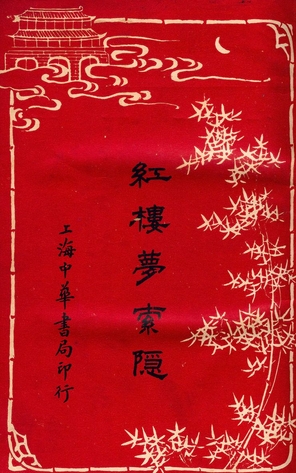 紅樓夢索隱
上海中華書局印行